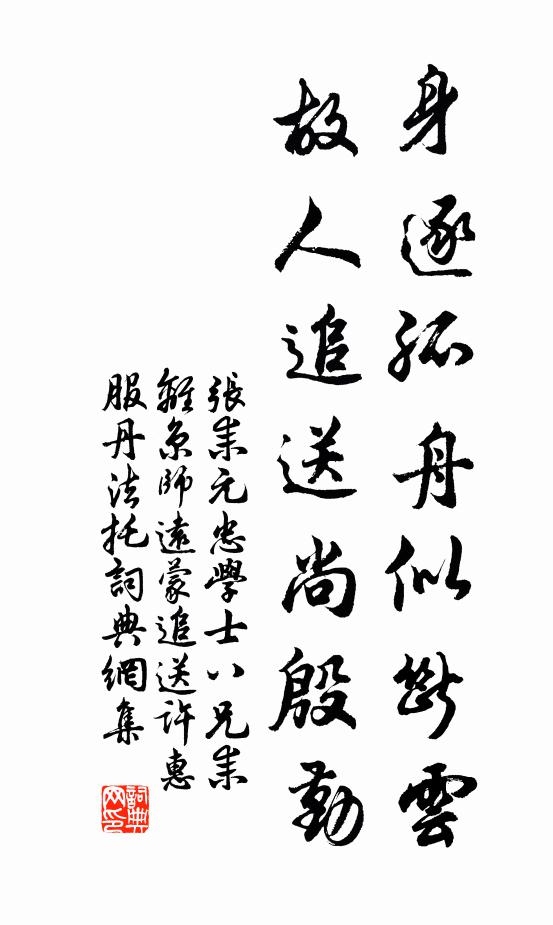 身逐孤舟似斷雲
故人追送尚殷勤
張耒元忠學士八兄耒
離京師遠蒙追送許惠
服丹法托詞典網集
詞典網印